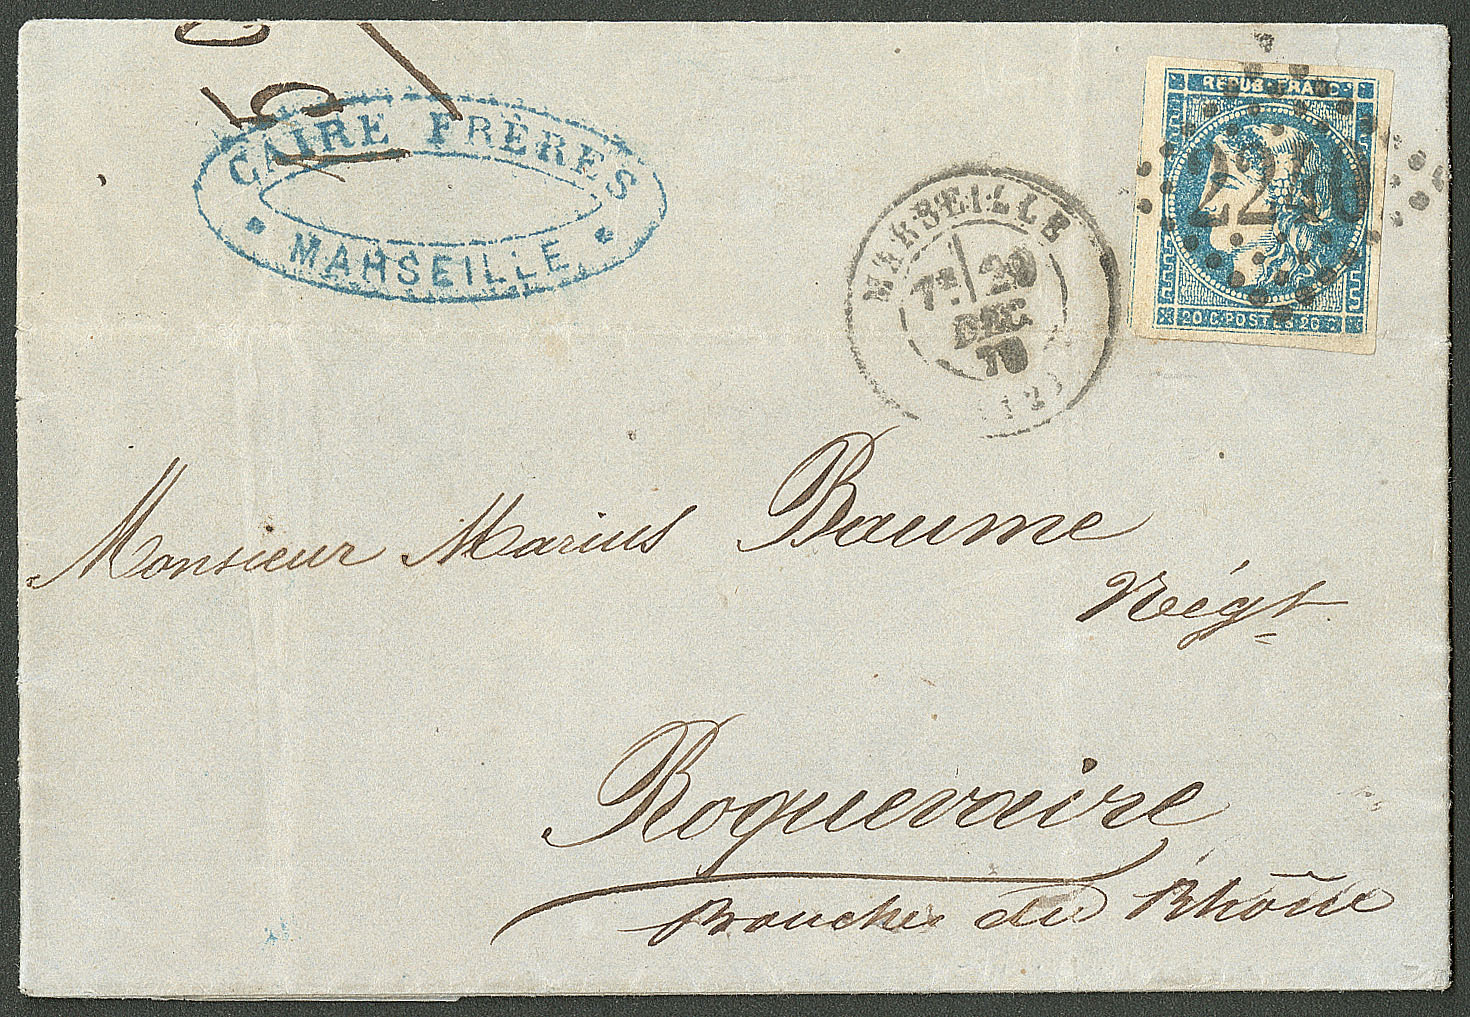 CAIRE FRÈRES
MARSEILLE
MARSEILLE
7E 20
DEC
70
(12)
REPUB·FRANC
2240
20·C·POSTES·20·C
Monsieur Marius Baume
Négt
Roquevaire
Bouche du Rhône